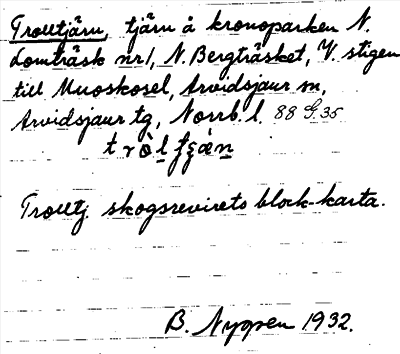 Trolltjärn, tjärn å kronoparken N.
Lomträsk nr 1, N. Bergträsket, V. stigen
till Muoskosel, Arvidsjaur sn,
Arvidsjaur tg, Norrb. l. 88 G. 35
Trolltj. skogsrevirets block-karta.
B. Nygren 1932.